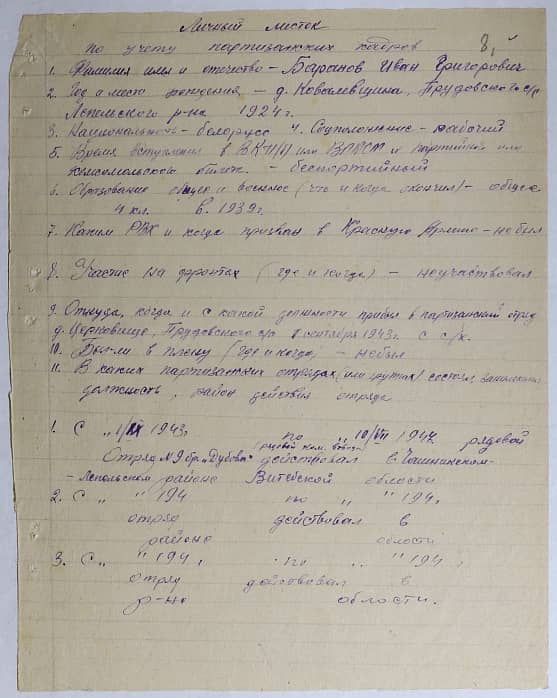 Личный листок
по учету партизанских кадров
8.
1. Фамилия имя и отечество – Баранов Иван Григорович
2. Год и место рождения – д. Ковалевщина, Прудовского с/с
Лепельского р-на 1924 г.
3. Национальность – белорусс 4. Соцположение – рабочий
5. Время вступления в ВКП/б/ или ВЛКСМ и партийного или
комсомольского билета. – беспортийный
6. Образование общее и военное (что и когда окончил) – общее
4 кл. в 1939 г.
7. Каким РВК и когда призван в Красную Армию – не был
8. Участие на фронтах (где и когда) – неучаствовал
9. Откуда, когда и с какой должности прибыл в партизанский отряд
д. Церковище, Прудовского с/с сентября 1943 г. с с/х.
10. Был-ли в плену (где и когда) – небыл
11. В каких партизанских отрядах (или группах) состоял, занимаемая
должность, район действия отряда
1. С „1/IX 1943 г. по „10/VII 1944 рядовой
Отряд № 9 бр. „Дубова" действовал в Чашникском-
Лепельском районе Витебской области
2. С „ " 194 по „ " 194 г.
отряд действовал в
районе области
3. С „ " 194, по „ " 194,
отряд действовал в
р-не области.